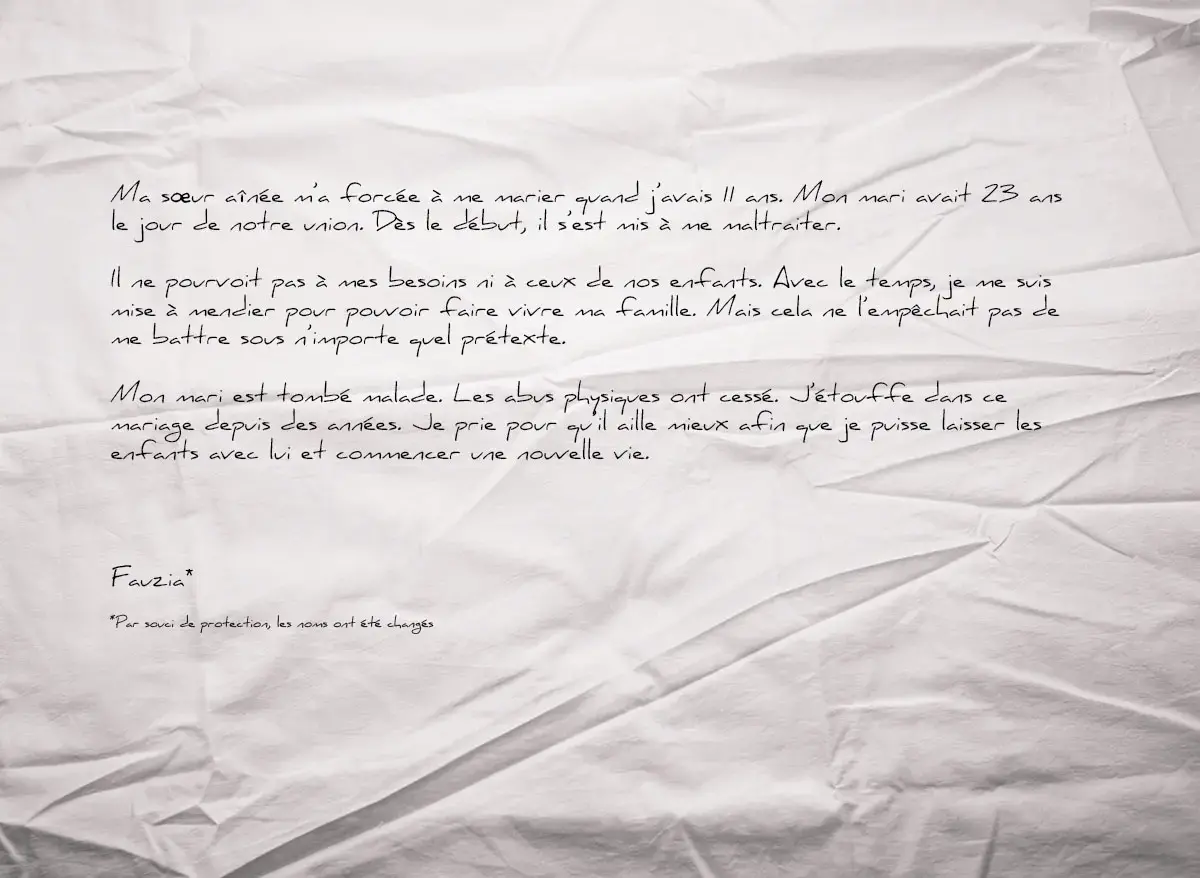 Ma sœur aînée m'a forcée à me marier quand j'avais 11 ans. Mon mari avait 23 ans
le jour de notre union. Dès le début, il s'est mis à me maltraiter.
Il ne pourvoit pas à mes besoins ni à ceux de nos enfants. Avec le temps, je me suis
mise à mendier pour pouvoir faire vivre ma famille. Mais cela ne l'empêchait pas de
me battre sous n'importe quel prétexte.
Mon mari est tombé malade. Les abus physiques ont cessé. J'étouffe dans ce
mariage depuis des années. Je prie pour qu'il aille mieux afin que je puisse laisser les
enfants avec lui et commencer une nouvelle vie.
Fauzia*
*Par souci de protection, les noms ont été changés